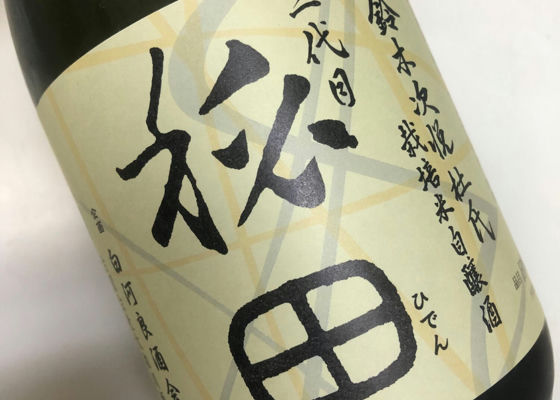 鈴木次悦杜氏
栽培米自醸酒
代目
秘田
ひでん
企画 白河良酒会